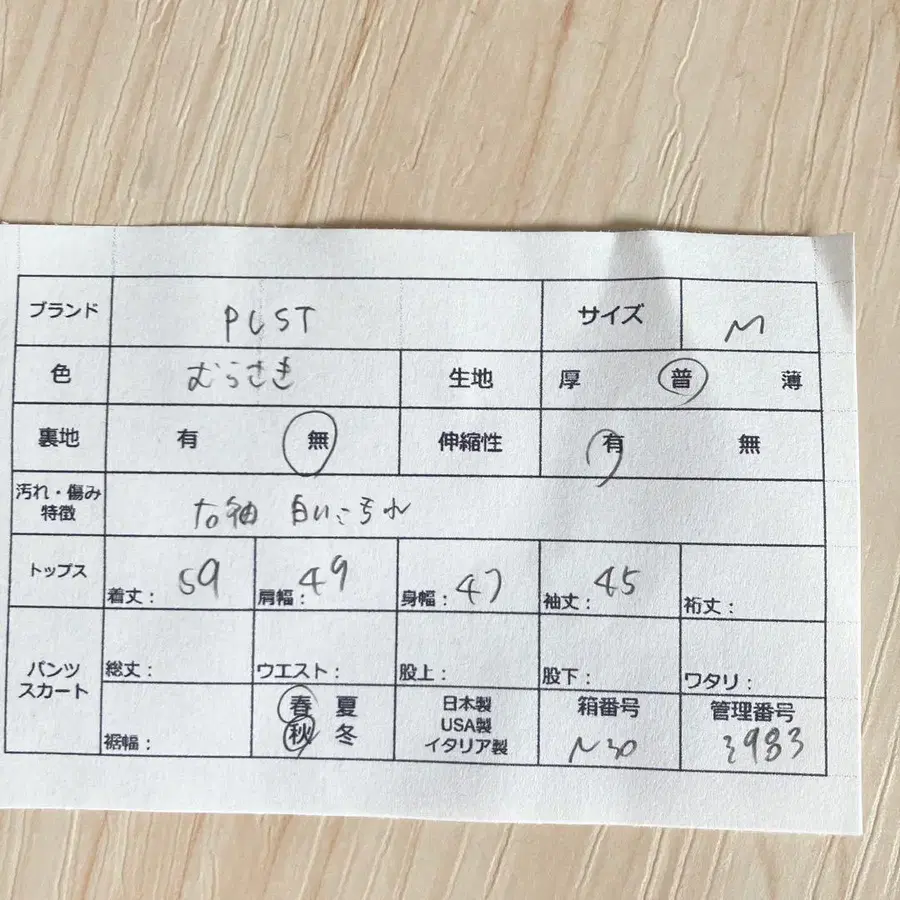 ブランド PLST サイズ M
色 むらさき 生地 厚 普 薄
裏地 有 無 伸縮性 有 無
汚れ・傷み
特徴 右袖 白い汚れ
トップス 着丈: 59 肩幅: 49 身幅: 47 袖丈: 45 裄丈:
パンツ
スカート 総丈: ウエスト: 股上: 股下: ワタリ:
裾幅: 春 夏
秋 冬 日本製
USA製
イタリア製 箱番号
N30 管理番号
3983